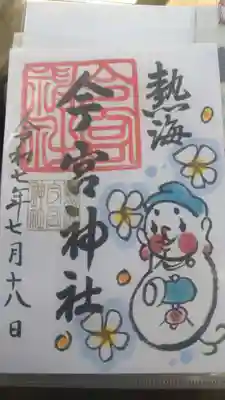 熱海
今宮神社
令和七年七月十八日
今宮
神社